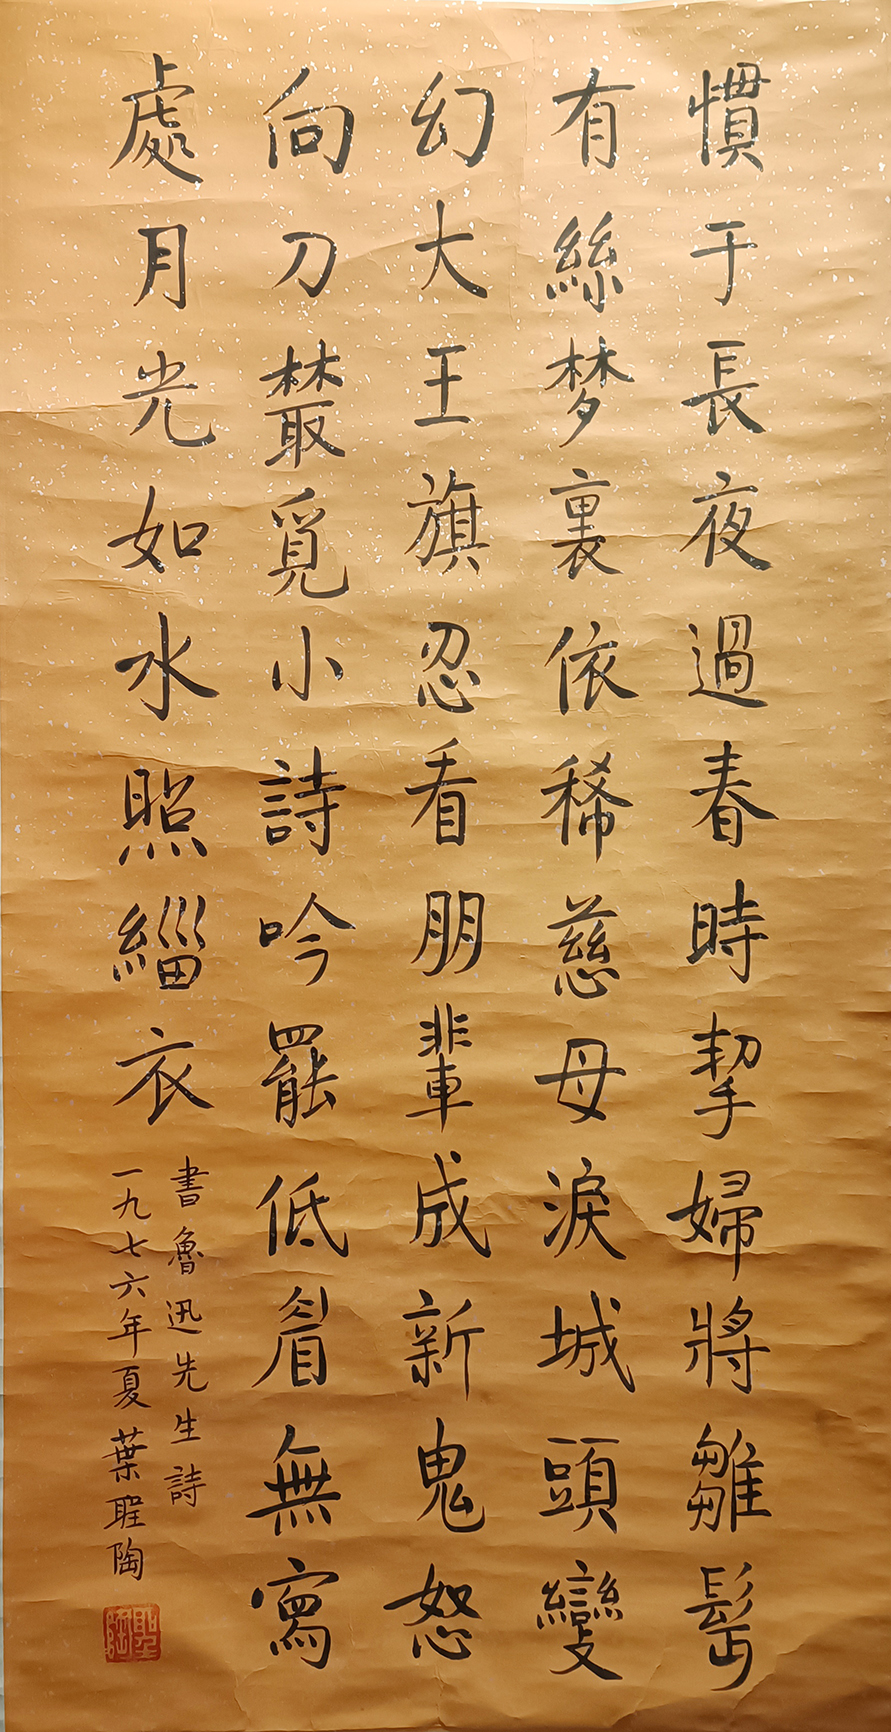 慣于長夜過春時挈婦將雛鬂
有絲梦裏依稀慈母淚城頭變
幻大王旗忍看朋輩成新鬼怒
向刀叢覓小詩吟罷低眉無寫
處月光如水照緇衣
書魯迅先生詩
一九七六年夏葉聖陶
聖陶